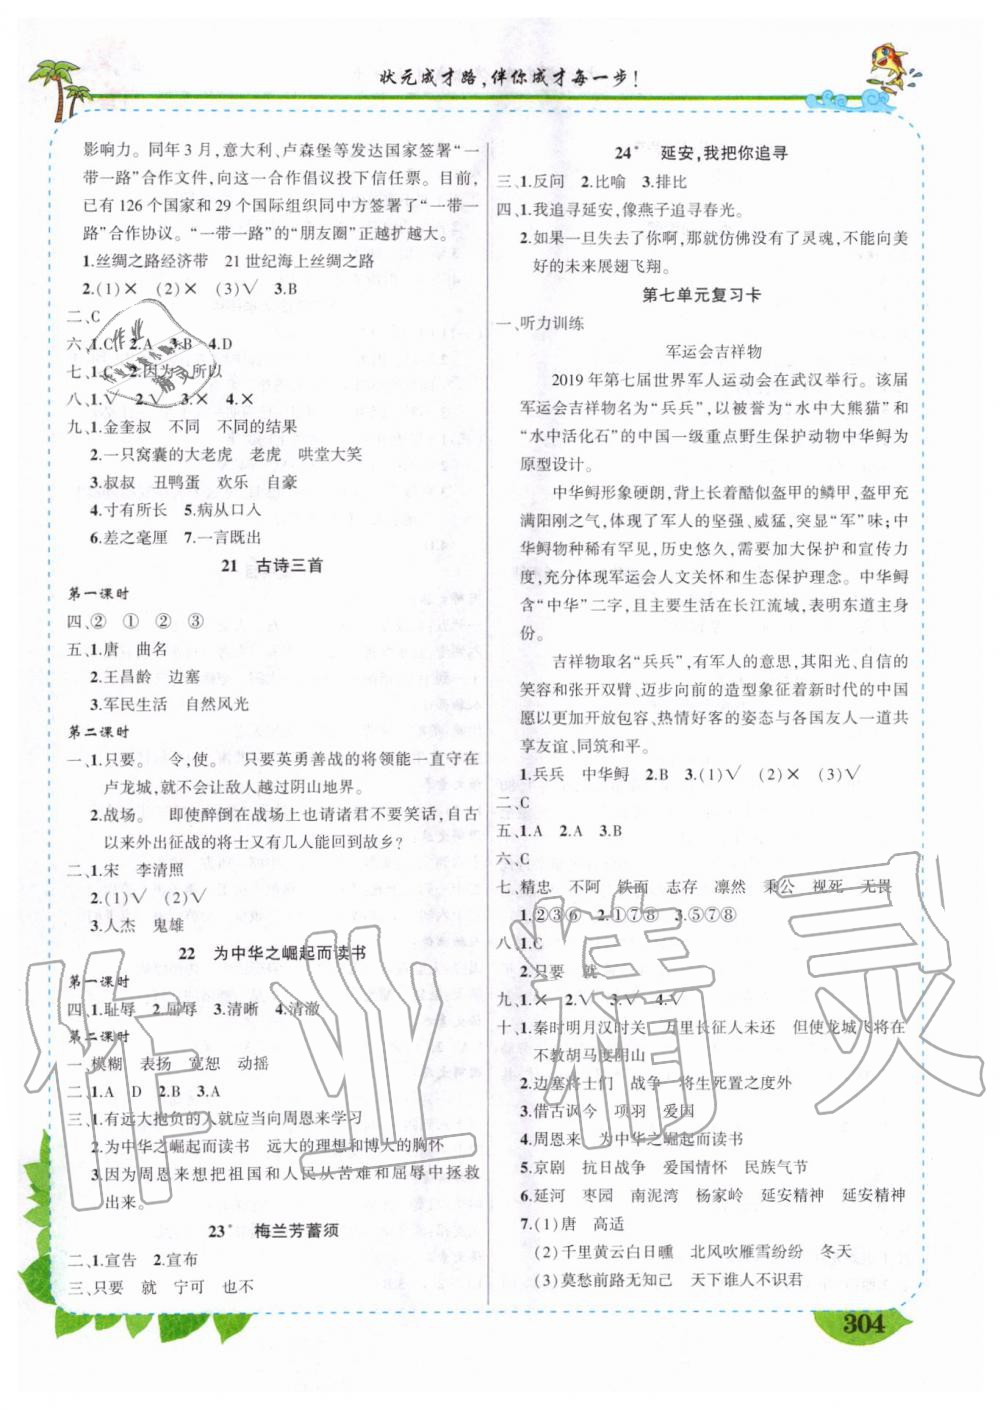 状元成才路,伴你成才每一步!
影响力。同年3月,意大利、卢森堡等发达国家签署“一
带一路”合作文件,向这一合作倡议投下信任票。目前,
已有126个国家和29个国际组织同中方签署了“一带一
路”合作协议。“一带一路”的“朋友圈”正越扩越大。
1.丝绸之路经济带 21世纪海上丝绸之路
2.(1)× (2)× (3)√ 3.B
二、C
六、1.C 2.A 3.B 4.D
七、1.C 2.因为 所以
八、1.√ 2.√ 3.× 4.×
九、1.金奎叔 不同 不同的结果
2.一只窝囊的大老虎 老虎 哄堂大笑
3.叔叔 丑鸭蛋 欢乐 自豪
4.寸有所长 5.病从口入
6.差之毫厘 7.一言既出
21 古诗三首
第一课时
四、② ① ② ③
五、1.唐 曲名
2.王昌龄 边塞
3.军民生活 自然风光
第二课时
一、1.只要。 令,使。 只要英勇善战的将领能一直守在
卢龙城,就不会让敌人越过阴山地界。
2.战场。 即使醉倒在战场上也请诸君不要笑话,自古
以来外出征战的将士又有几人能回到故乡?
二、1.宋 李清照
2.(1)√ (2)√
3.人杰 鬼雄
22 为中华之崛起而读书
第一课时
四、1.耻辱 2.屈辱 3.清晰 4.清澈
第二课时
一、模糊 表扬 宽恕 动摇
二、1.A D 2.B 3.A
三、1.有远大抱负的人就应当向周恩来学习
2.为中华之崛起而读书 远大的理想和博大的胸怀
3.因为周恩来想把祖国和人民从苦难和屈辱中拯救
出来。
23* 梅兰芳蓄须
二、1.宣告 2.宣布
三、只要 就 宁可 也不
24* 延安,我把你追寻
三、1.反问 2.比喻 3.排比
四、1.我追寻延安,像燕子追寻春光。
2.如果一旦失去了你啊,那就仿佛没有了灵魂,不能向美
好的未来展翅飞翔。
第七单元复习卡
一、听力训练
军运会吉祥物
2019年第七届世界军人运动会在武汉举行。该届
军运会吉祥物名为“兵兵”,以被誉为“水中大熊猫”和
“水中活化石”的中国一级重点野生保护动物中华鲟为
原型设计。
中华鲟形象硬朗,背上长着酷似盔甲的鳞甲,盔甲充
满阳刚之气,体现了军人的坚强、威猛,突显“军”味;中
华鲟物种稀有罕见,历史悠久,需要保护和宣传力
度,充分体现军运会人文关怀和生态保护理念。中华鲟
含“中华”二字,且主要生活在长江流域,表明东道主身
份。
吉祥物取名“兵兵”,有军人的意思,其阳光、自信的
笑容和张开双臂、迈步向前的造型象征着新时代的中国
愿以更加开放包容、热情好客的姿态与各国友人一道共
享友谊、同筑和平。
1.兵兵 中华鲟 2.B 3.(1)√ (2)× (3)√
二、C
五、1.A 2.A 3.B
六、C
七、精忠 不阿 铁面 志存 凛然 秉公 视死 无畏
1.②③⑥ 2.①⑦⑧ 3.④⑤⑦⑧
八、1.C
2.只要 就
九、1.× 2.√ 3.√ 4.√
十、1.秦时明月汉时关 万里长征人未还 但使龙城飞将在
不教胡马度阴山
2.边塞将士们 战争 将生死置之度外
3.借古讽今 项羽 爱国
4.周恩来 为中华之崛起而读书
5.京剧 抗日战争 爱国情怀 民族气节
6.延河 枣园 南泥湾 杨家岭 延安精神 延安精神
7.(1)唐 高适
(2)千里黄云白日曛 北风吹雁雪纷纷 冬天
(3)莫愁前路无知己 天下谁人不识君
304
作业精灵